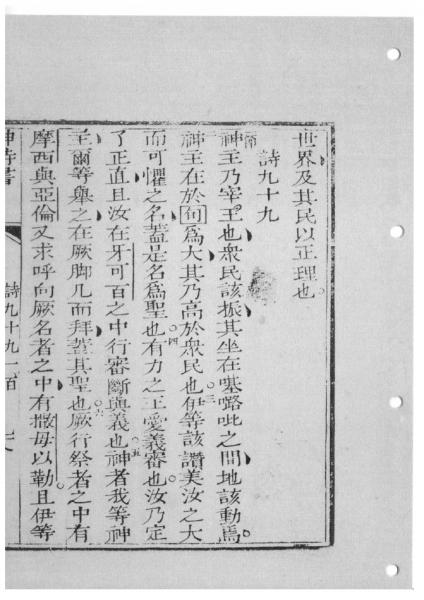 世界及其民以正理也。
詩九十九
神主乃宰王也衆民該振其坐在㗭𡀔吡之間地該動焉。
神主在於郇爲大其乃高於衆民也。三伊等該讚美汝之大
而可懼之名蓋是名爲聖也。四有力之王愛義審也汝乃定
了正直且汝在牙可百之中行審斷與義也。五神者我等神
主爾等舉之在厥脚几而拜蓋其聖也。六厥行祭者之中有
摩西與亞倫又求呼向厥名者之中有撒母以勒且伊等
神詩書 詩九十九一百